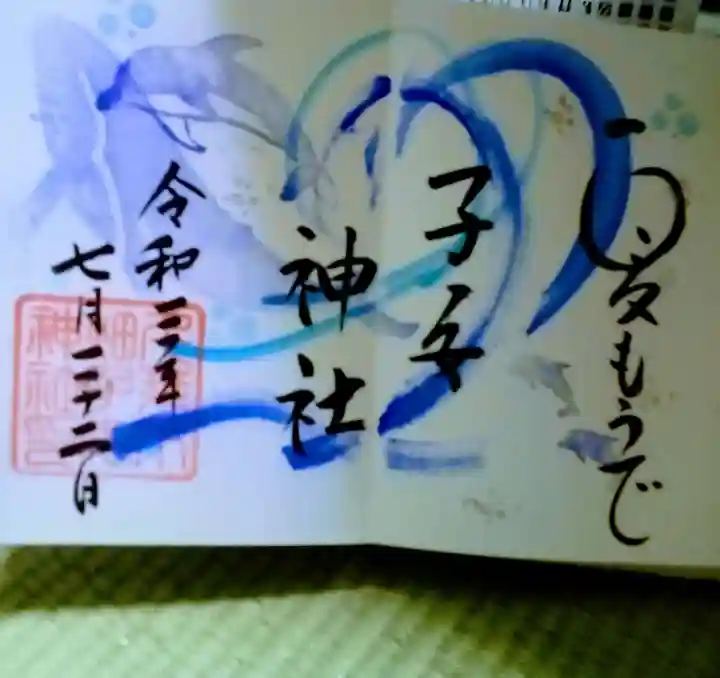 夏もうで
子安
神社
令和三年
七月二十二日